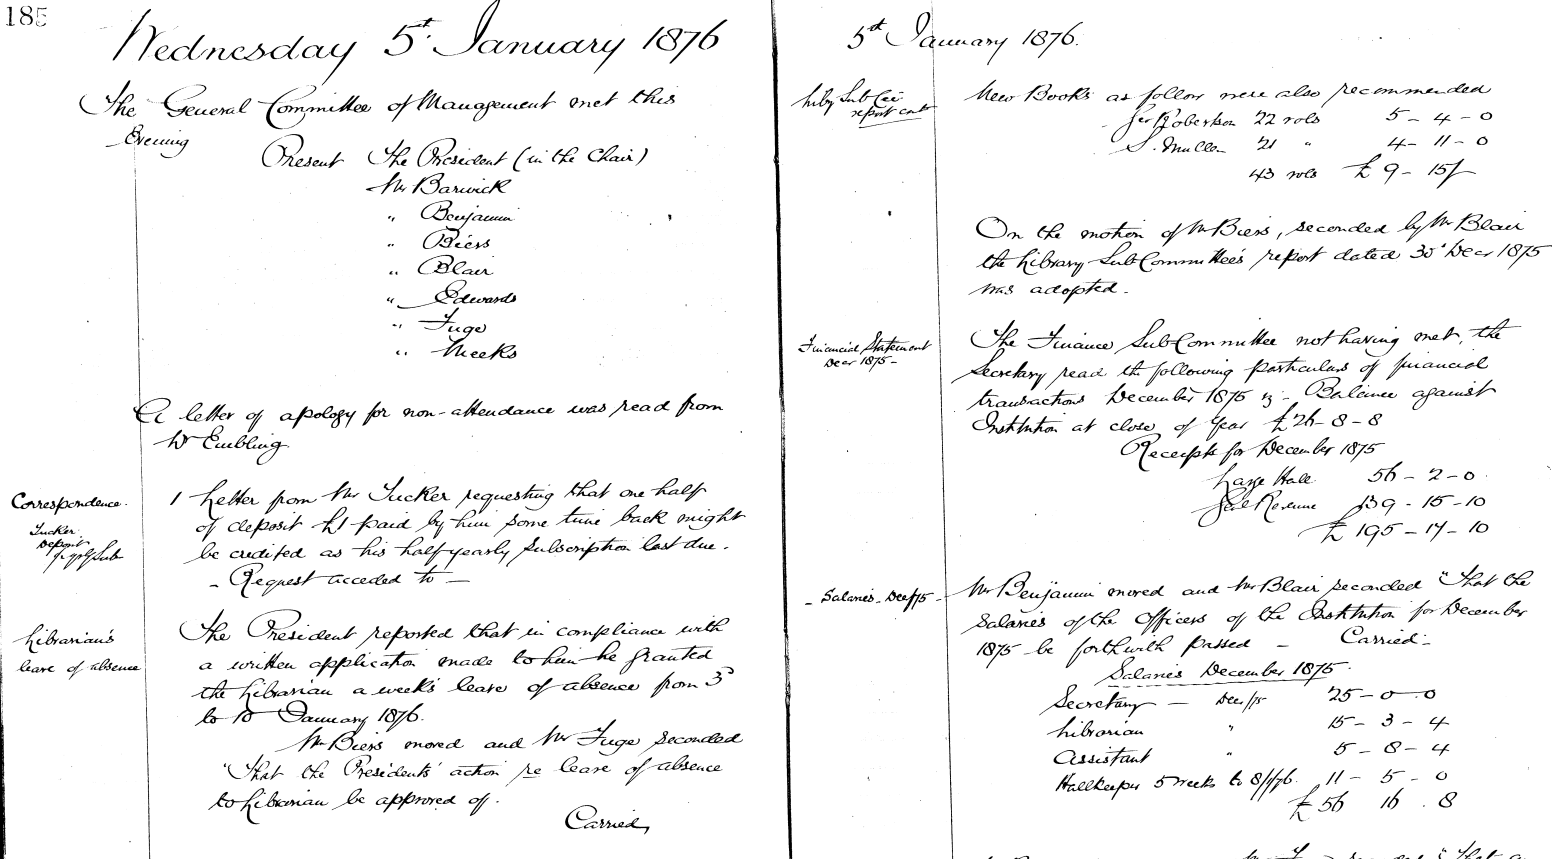 185
Wednesday 5th January 1876
The General Committee of Management met this
Evening
Present The President (in the Chair)
Mr Barwick
" Benjamin
" Biers
" Blair
" Edwards
" Fuge
" Meeks
A letter of apology for non-attendance was read from
Dr Embling
Correspondence.
Tucker
Deposit
½ yrly Sub
1 Letter from Mr Tucker requesting that one half
of deposit £1 paid by him some time back might
be credited as his half yearly Subscription last due.
- Request acceded to -
Librarian's
leave of absence
The President reported that in compliance with
a written application made to him he granted
the Librarian a week's leave of absence from 3d
to 10 January 1876.
Mr Biers moved and Mr Fuge seconded
"That the Presidents' action re leave of absence
to Librarian be approved of.
Carried,
5th January 1876.
Liby Sub Cee
report contd
New Books as follow were also recommended
Geo Robertson 22 vols 5-4-0
S. Mullen 21 " 4-11-0
43 vols £9-15/-
On the motion of Mr Biers, seconded by Mr Blair
the Library Sub Committee's report dated 30th Decr 1875
was adopted.
Financial Statement
Decr 1875-
The Finance Sub Committee not having met, the
Secretary read the following particulars of financial
transactions December 1875 viz- Balance against
Institution at close of Year £26-8-8
Receipts for December 1875
Large Hall 56-2-0
Genl Revenue 139-15-10
£195-17-10
- Salaries - Dec/75 -
Mr Benjamin moved and Mr Blair seconded "That the
Salaries of the Officers of the Institution for December
1875 be forthwith passed - Carried-
Salaries December 1875.
Secretary - Dec/75 25-0-0
Librarian " 15-3-4
Assistant " 5-8-4
Hallkeeper 5 weeks to 8/1/76. 11-5-0
£56 16.8